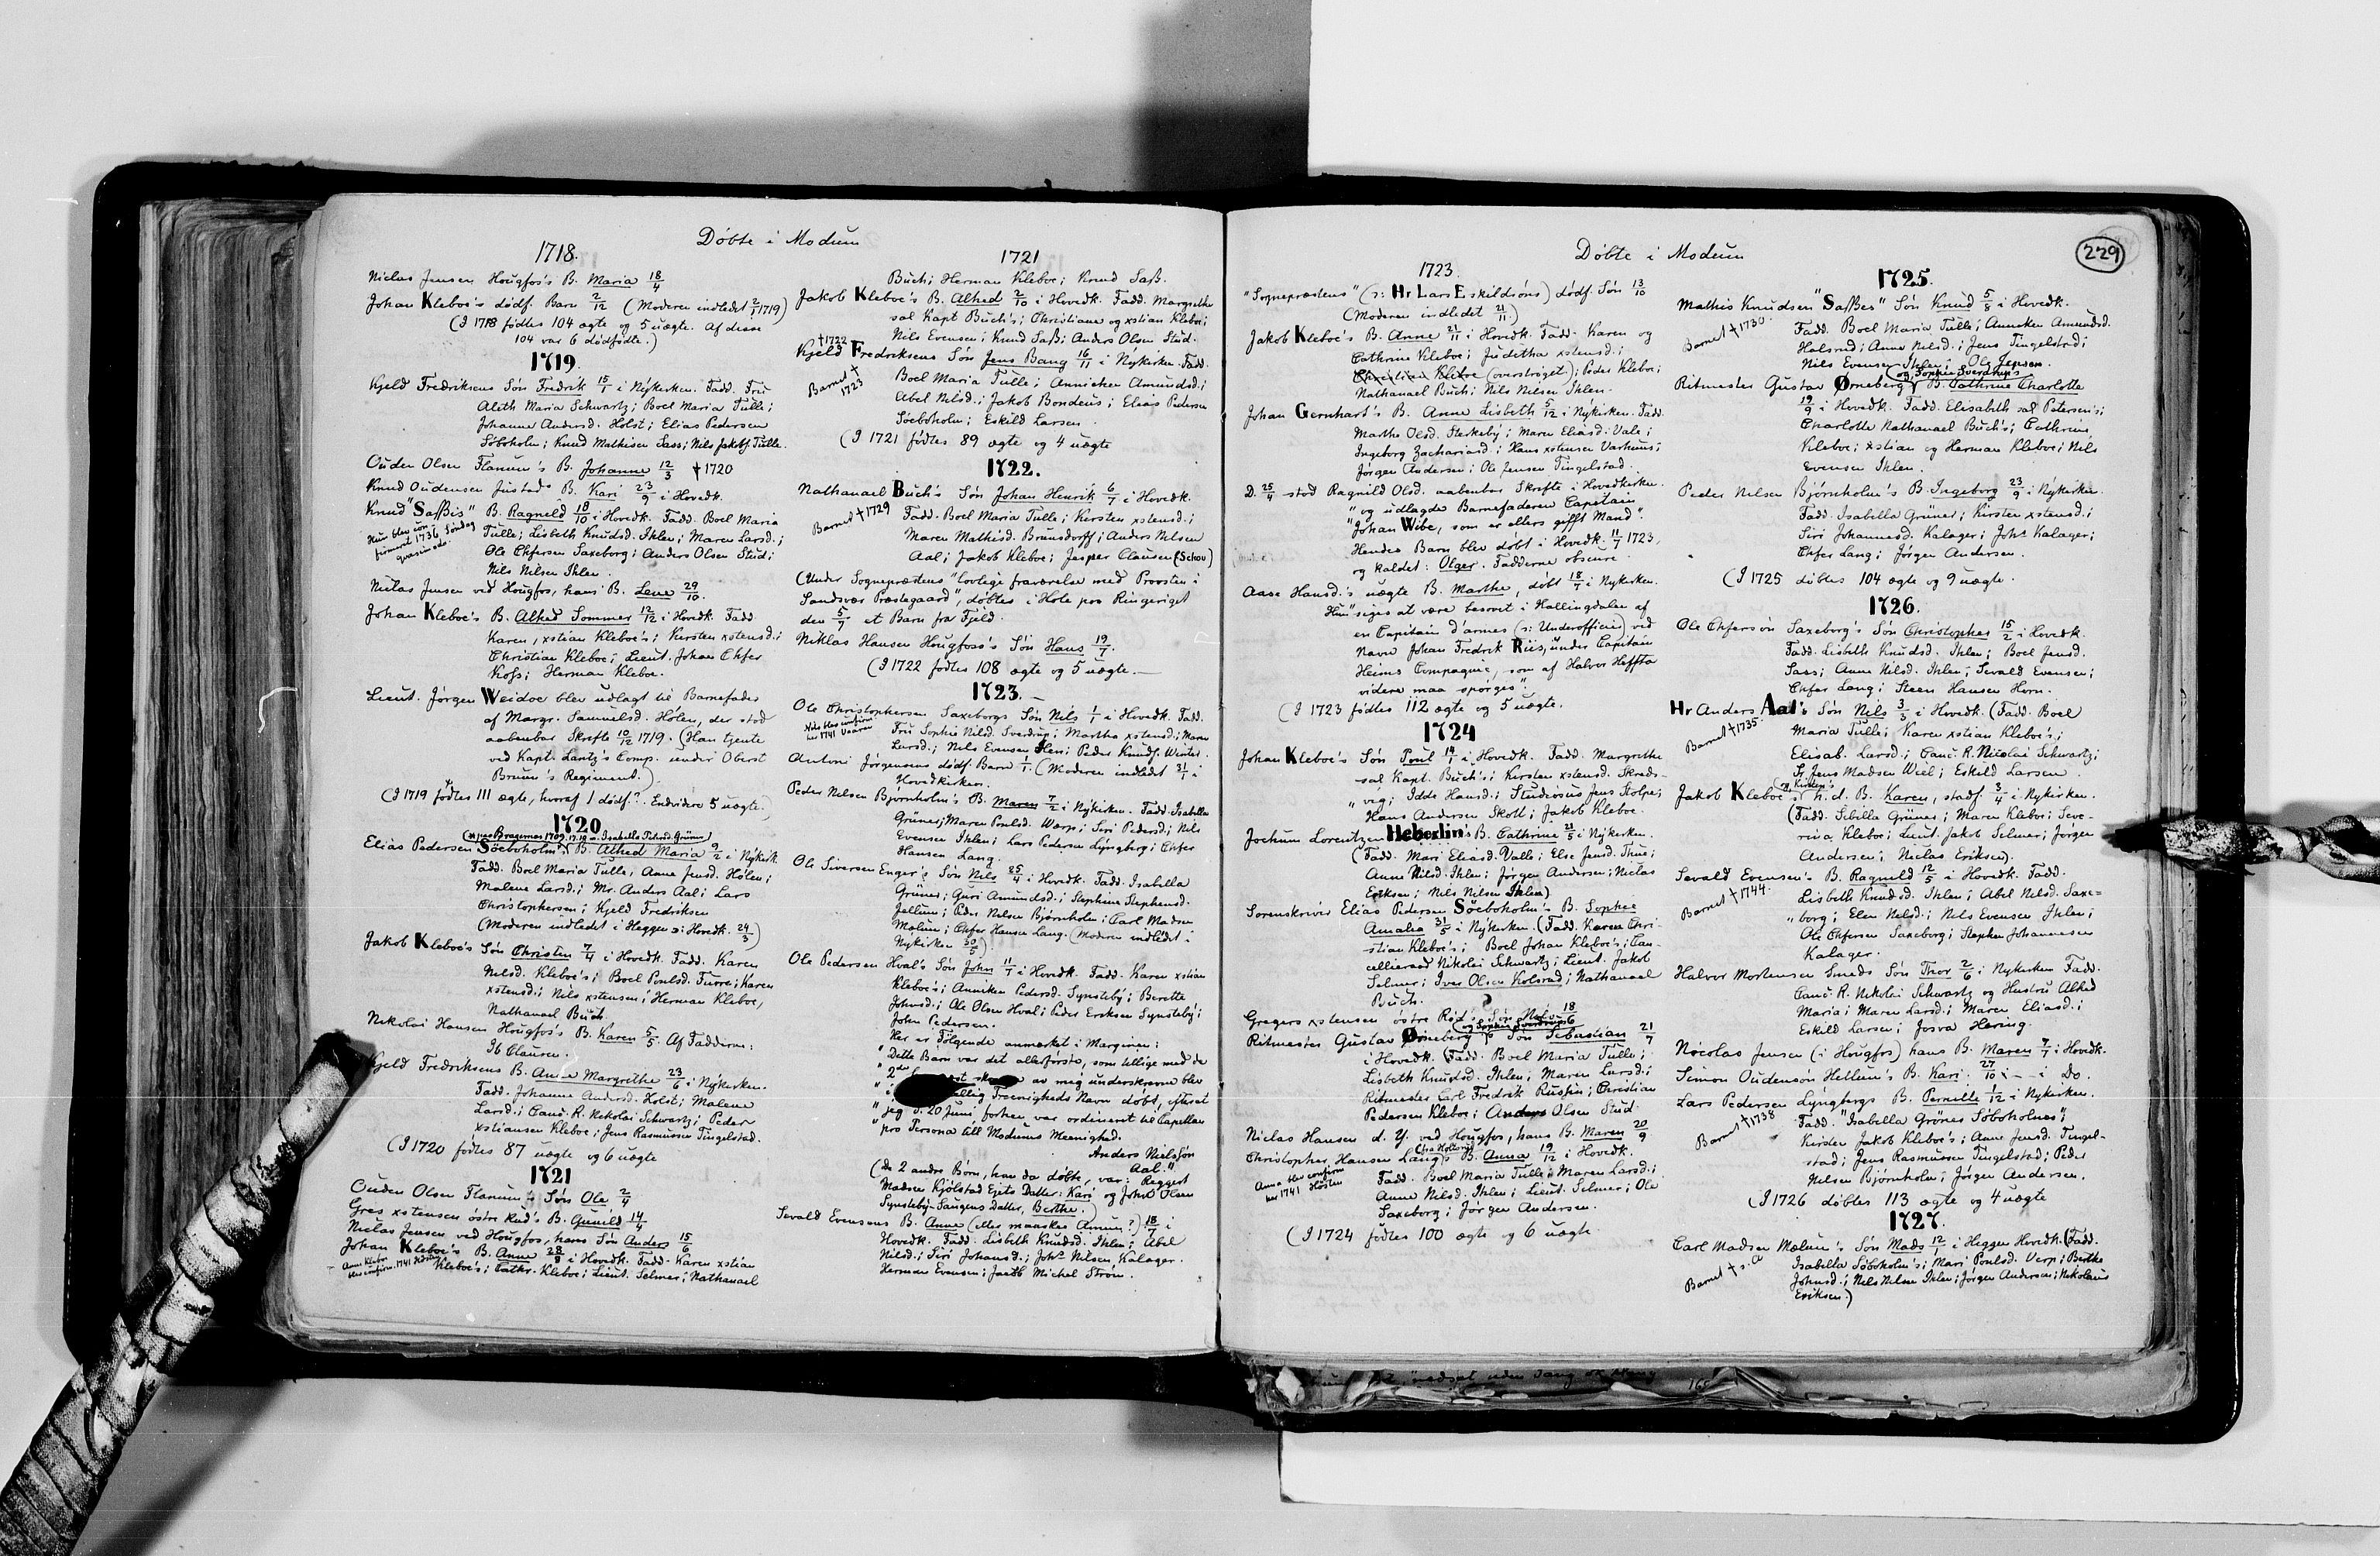 Døbte i Modum
1718.
Niclas Jensen Hougfos's B. Maria 18/4
Johan Kleboe's dødf. Barn 2/12 (Moderen indledet 2/1 1719)
(I 1718 fødtes 104 ægte og 5 uægte. Af disse
104 var 6 dødfødte.)
1719.
Kjeld Fredriksens Søn Fredrik 15/1 i Nykirken. Fadd. Fru
Aleth Maria Schwartz; Boel Maria Tulle;
Johanne Andersd. Holst; Elias Pedersen
Söboholm; Knud Mathisen Sass; Nils Jakobs. Tulle.
Ouden Olsen Flannum's B. Johanne 12/3 † 1720
Knud Oudensen Justads B. Kari 23/9 i Hovedk.
Knud "Saszis" B. Ragneld 18/10 i Hovedk. Fadd. Boel Maria
Hun blev con-
firmeret 1736 Søndag
quasimodo.
Tulle; Lisbeth Knudsd. Ihlen; Maren Larsd.;
Ole Chfersen Saxeborg; Anders Olsen Stud;
Nils Nilsen Ihlen.
Niclas Jensen ved Hougfos, hans B. Lene 29/10.
Johan Kleboe's B. Alhed Sommer 12/12 i Hovedk. Fadd
Karen, xstian Kleboe's; Kirsten xstensd.;
Christian Kleboe; Lieut. Johan Chfer
Koss; Herman Kleboe.
Lieut. Jørgen Weidoe blev udlagt til Barnefader
af Margr. Samuelsd. Hølen, der stod
aabenbar Skrifte 10/12 1719. (Han tjente
ved Kapt. Lantz's Comp. under Oberst
Bruun's Regiment.)
(I 1719 fødtes 111 ægte, hvoraf 1 dødf.? Endvidere 5 uægte.)
1720
Elias Pedersen Söeboholm's B. Alhed Maria 9/2 i Nykirk.
Fadd. Boel Maria Tulle, Anne Jensd. Hølen;
Malene Larsd.; Mr. Anders Aal; Lars
Christophersen; Kjeld Fredriksen
(Moderen indledet i Heggen ɔ: Hovedk. 24/3)
Jakob Kleboe's Søn Christen 7/4 i Hovedk. Fadd. Karen
Nilsd. Kleboe's; Boel Poulsd. Furre; Karen
xstensd.; Nils xstensen; Herman Kleboe,
Nathanael Buch.
Nikolai Hansen Hougfos's B. Karen 5/5. Af Fadderne:
Ib Clausen.
Kjeld Fredriksens B. Anne Margrethe 23/6 i Nykirken.
Fadd. Johanne Andersd. Holst; Malene
Larsd.; Canc. R. Nikolai Schwartz; Peder
xstiansen Kleboe; Jens Rasmussen Tingelstad.
(I 1720 fødtes 87 uægte og 6 uægte
1721
Ouden Olsen Flannum's Søn Ole 2/4
Gres xstensen østre Rud's B. Gunild 14/4
Niclas Jensen ved Hougfos, hans Søn Anders 15/6
Johan Kleboe's B. Anne 28/9 i Hovedk. Fadd. Karen xstian
Anne Kleboe
blev confirm. 1741 Høsten
Kleboe's; Cathr. Kleboe; Lieut. Selmer; Nathanael
1721
Buch; Herman Kleboe; Knud Sasz.
Jakob Kleboe's B. Alhed 2/10 i Hovedk. Fadd. Margrethe
sal Kapt Buch's; Christiane og xstian Kleboe;
Nils Evensen; Knud Sasz; Anders Olsen Stud.
† 1722
Kjeld Fredriksens Søn Jens Bang 16/11 i Nykirken. Fadd.
Barnet †
1723
Boel Maria Tulle; Annichen Amundsd.;
Abel Nilsd.; Jakob Bondeus; Elias Pedersen
Söeboholm; Eskild Larsen.
(I 1721 fødtes 89 ægte og 4 uægte
1722.
Nathanael Buch's Søn Johan Henrik 6/7 i Hovedk.
Barnet † 1729
Fadd. Boel Maria Tulle; Kersten xstensd.;
Maren Mathisd. Brunsdorff; Anders Nilsen
Aal; Jakob Kleboe; Jesper Clausen (Schou)
(Under Sognepræstens "lovlige fraværelse med Provsten i
Sandsvær Præstegaard", døbtes i Hole paa Ringeriget
den 5/7 et Barn fra Fjeld.
Niklas Hansen Hougfoss's Søn Hans 19/7.
(I 1722 fødtes 108 ægte og 5 uægte.—
1723.—
Ole Christophersen Saxeborgs Søn Nils 1/1 i Hovedk. Fadd.
Nils blev confirm-
ret 1741 Vaaren
Fru Sophie Nilsd. Sverdrup; Martha xstensd.; Maren
Larsd.; Nils Evensen Ihlen; Peder Knuds. Winter.
Antoni Jörgensens dødf. Barn 1/1. (Moderen indledet 31/1 i
Hovedkirken.
Peder Nilsen Bjørnholm's B. Maren 7/2 i Nykirken. Fadd Isabella
Grüner; Maren Poulsd. Wærp; Siri Pedersd.; Nils
Evensen Ihlen; Lars Pedersen Lyngberg; Chfer
Hansen Lang.
Ole Siversen Enger's Søn Nils 25/4 i Hovedk. Fadd. Isabella
Grüner; Guri Amundsd.; Stephine Stephensd.
Jellum; Peder Nilsen Bjørnholm; Carl Madsen
Mælum; Chfer Hansen Lang. (Moderen indledet i
Nykirken 30/5)
Ole Pedersen Hval's Søn John 11/7 i Hovedk. Fadd. Karen xstian
Kleboe's; Anniken Pedersd. Synsteby; Berette
Johnsd.; Ole Olsen Hval; Peder Eriksen Synsteby;
John Pedersen.
Her er Følgende anmærket i Marginen:
"Dette Barn var det allerførste, som tillige med de
" jeg d. 20 Juni forhen var ordineret til Capellan
" pro Persona till Modums Meenighed.
Anders Nielssøn
Aal."
(De 2 andre Børn, han da døbte, var: Reggert
Madsen Kjölstad Ejets Datter: Kari og John Olsen
Synsteby-Saugens Datter, Berthe.)
Sevald Evensens B. Anne (eller maaskee Amun?) 18/7 i
Hovedk. Fadd. Lisbeth Knudsd. Ihlen; Abel
Nilsd.; Siri Johansd.; Johs Nilsen Kalager.
Herman Evensen; Jacob Michel Strøm.
Døbte i Modum
229
1723.
"Sognepræstens" (ɔ: Hr Lars Eskildsöns) dødf. Søn 13/10
(Moderen indledet 21/11.)
Jakob Kleboe's B. Anne 21/11 i Hovedk. Fadd. Karen og
Cathrine Kleboe; Juditha xstensd.;
Christine Kleboe (overstrøget); Peder Kleboe;
Nathanael Buch; Nils Nilsen Ihlen.
Johan Gernhart's B. Anne Lisbeth 5/12 i Nykirken. Fadd.
Marthe Olsd. Sterkeby; Maren Eliasd. Vale;
Ingeborg Zachariasd.; Hans xstensen Varhuus;
Jørgen Andersen; Ole Jensen Tingelstad.
D. 25/4 stod Ragnild Olsd. aabenbar Skrifte i Hovedkirken.
" og udlagde Barnefaderen Capitain
"Johan Wibe, som er ellers gifft Mand".
Hendes Barn blev døbt i Hovedk. 11/7 1723,
og kaldet: Olger. Fadderne obscure.
Aase Hansd.'s uægte B. Marthe, døbt 18/7 i Nykirken.
Hun "siges at være besovet i Hallingdalen af
en Capitain d'armes (ɔ: Underofficier) ved
Navn Johan Fredrik Riis, under Capitain
Heims Compagnie, som af Halvor Heffta
videre maa spørges".
(I 1723 fødtes 112 ægte og 5 uægte.
1724
Johan Kleboe's Søn Poul 14/1 i Hovedk. Fadd. Margrethe
sal Kapt. Buch's; Kirsten xstensd. Skreds-
" vig; Idde Hansd.; Studiosus Jens Stolpe;
Hans Andersen Skott; Jakob Kleboe.
Jochum Lorentzen Heberlin's B. Cathrine 21/5 i Nykirken.
(Fadd. Mari Eliasd. Valle; Else Jensd. Thue;
Anne Nilsd. Ihlen; Jørgen Andersen; Niclas
Eriksen; Nils Nilsen Ihlen)
Sorenskriver Elias Pedersen Söeboholm's B. Sophie
Amalia 31/5 i Nykirken. (Fadd. Karen Chri-
stian Kleboe's; Boel Johan Kleboe's; Can-
cellieraad Nikolai Schwartz; Lieut. Jakob
Selmer; Iver Olsen Kolsrud; Nathanael
Buch.
Gregers xstensen östre Rud's Søn Nils 18/6
Ritmester Gustav Ørneberg's Søn Sebastian 21/7
og Sophie Sverdrups
i Hovedk. (Fadd. Boel Maria Tulle;
Lisbeth Knudsd. Ihlen; Maren Larsd.;
Ritmester Carl Fredrik Ruspin; Christian
Pedersen Kleboe; Anders Olsen Stud.
Niclas Hansen d. Y. ved Hougfos, hans B. Maren 20/9
Christopher Hansen Lang's B. Anna 19/12 i Hovedk.
Anna blev confirm-
ret 1741 Høsten
Fadd. Boel Maria Tulle; Maren Larsd.;
Anne Nilsd. Ihlen; Lieut. Selmer; Ole
Saxeborg; Jørgen Andersen.
(I 1724 fødtes 100 ægte og 6 uægte
1725.
Mathis Knudsen "Saszes" Søn Knud 5/8 i Hovedk.
Barnet † 1730.
Fadd. Boel Maria Tulle; Anneken Amundsd.
Halsrud; Anne Nilsd.; Jens Tingelstad;
Nils Evensen Ihlen; Ole Jensen.
og Sophie Sverdrup's
Ritmester Gustav Ørneberg's B. Cathrine Charlotte
19/9 i Hovedk. Fadd. Elisabeth sal Petersen's;
Charlotte Nathanael Buch's; Cathrine
Kleboe; xstian og Herman Kleboe; Nils
Evensen Ihlen.
Peder Nilsen Bjørnholm's B. Ingeborg 23/9 i Nykirken.
Fadd. Isabella Grüner; Kirsten xstensd.;
Siri Johannesd. Kalager; Johs Kalager;
Chfer Lang; Jørgen Andersen.
(I 1725 døbtes 104 ægte og 9 uægte.
1726.
Ole Chfersøn Saxeborg's Søn Christopher 15/2 i Hovedk.
Fadd. Lisbeth Knudsd. Ihlen; Boel Jensd.
Sass; Anne Nilsd. Ihlen; Sevald Evensen;
Chfer Lang; Steen Hansen Horn.
Hr Anders Aal's Søn Nils 3/3 i Hovedk. (Fadd. Boel
Barnet † 1735.
Maria Tulle; Karen xstian Kleboe's;
Elisab. Larsd.; Canc. R. Nicolai Schwartz;
Sr Jens Madsen Wiel; Eskild Larsen.
og Kirsten's
Jakob Kleboe's h. d. B. Karen, stadf. 3/4 i Nykirken.
(Fadd. Sibilla Grüner; Maren Kleboe; Seve-
rina Kleboe; Lieut. Jakob Selmer; Jørgen
Andersen; Niclas Eriksen).
Sevald Evensen's B. Ragnild 12/5 i Hovedk. Fadd.
Barnet † 1744.
Lisbeth Knudsd. Ihlen; Abel Nilsd. Saxe=
" borg; Elen Nilsd.; Nils Evensen Ihlen;
Ole Chfersen Saxeborg; Stephen Johannesen
Kalager.
Halvor Mortensen Smeds Søn Thor 2/6 i Nykirken Fadd.
Canc. R. Nikolai Schwartz og Hustru Alhed
Maria; Maren Larsd.; Maren Eliasd.;
Eskild Larsen; Josva Hering.
Nocolas Jensen (i Hougfos) hans B. Maren 7/7 i Hovedk.
Simon Oudensön Hellum's B. Kari 27/10 i — i Do.
Lars Pedersen Lyngbergs B. Pernille 1/12 i Nykirken.
Barnet † 1738
Fadd. "Isabella Grönes Söboholnes";
Kirsten Jakob Kleboe's; Anne Jensd. Tingel-
stad; Jens Rasmussen Tingelstad; Peder
Nilsen Bjørnholm; Jørgen Andersen.
(I 1726 døbtes 113 ægte og 4 uægte
1727.
Carl Madsen Mælum's Søn Mads 12/1 i Heggen Hovedk. (Fadd.
Barnet † s. A
Isabella Söboholm's; Mari Poulsd. Verp; Berthe
Johnsd.; Nils Nilsen Ihlen; Jørgen Andersen; Nikolaus
Eriksen.)